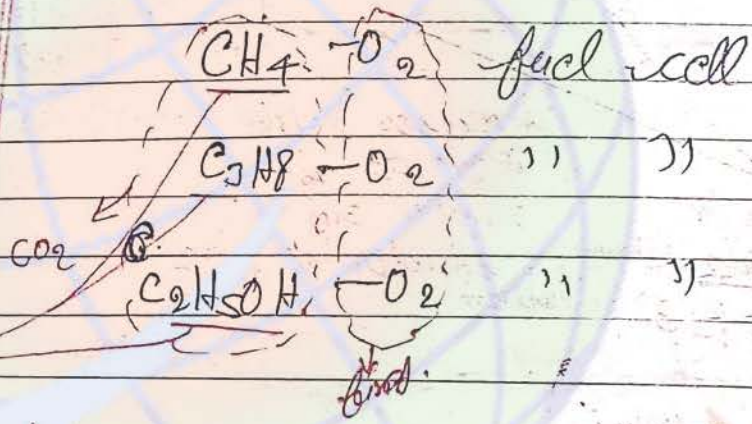 CH4 - O2 fuel cell
C3H8 - O2 ,, ,,
CO2
C2H5OH - O2 ,, ,,
fixed.